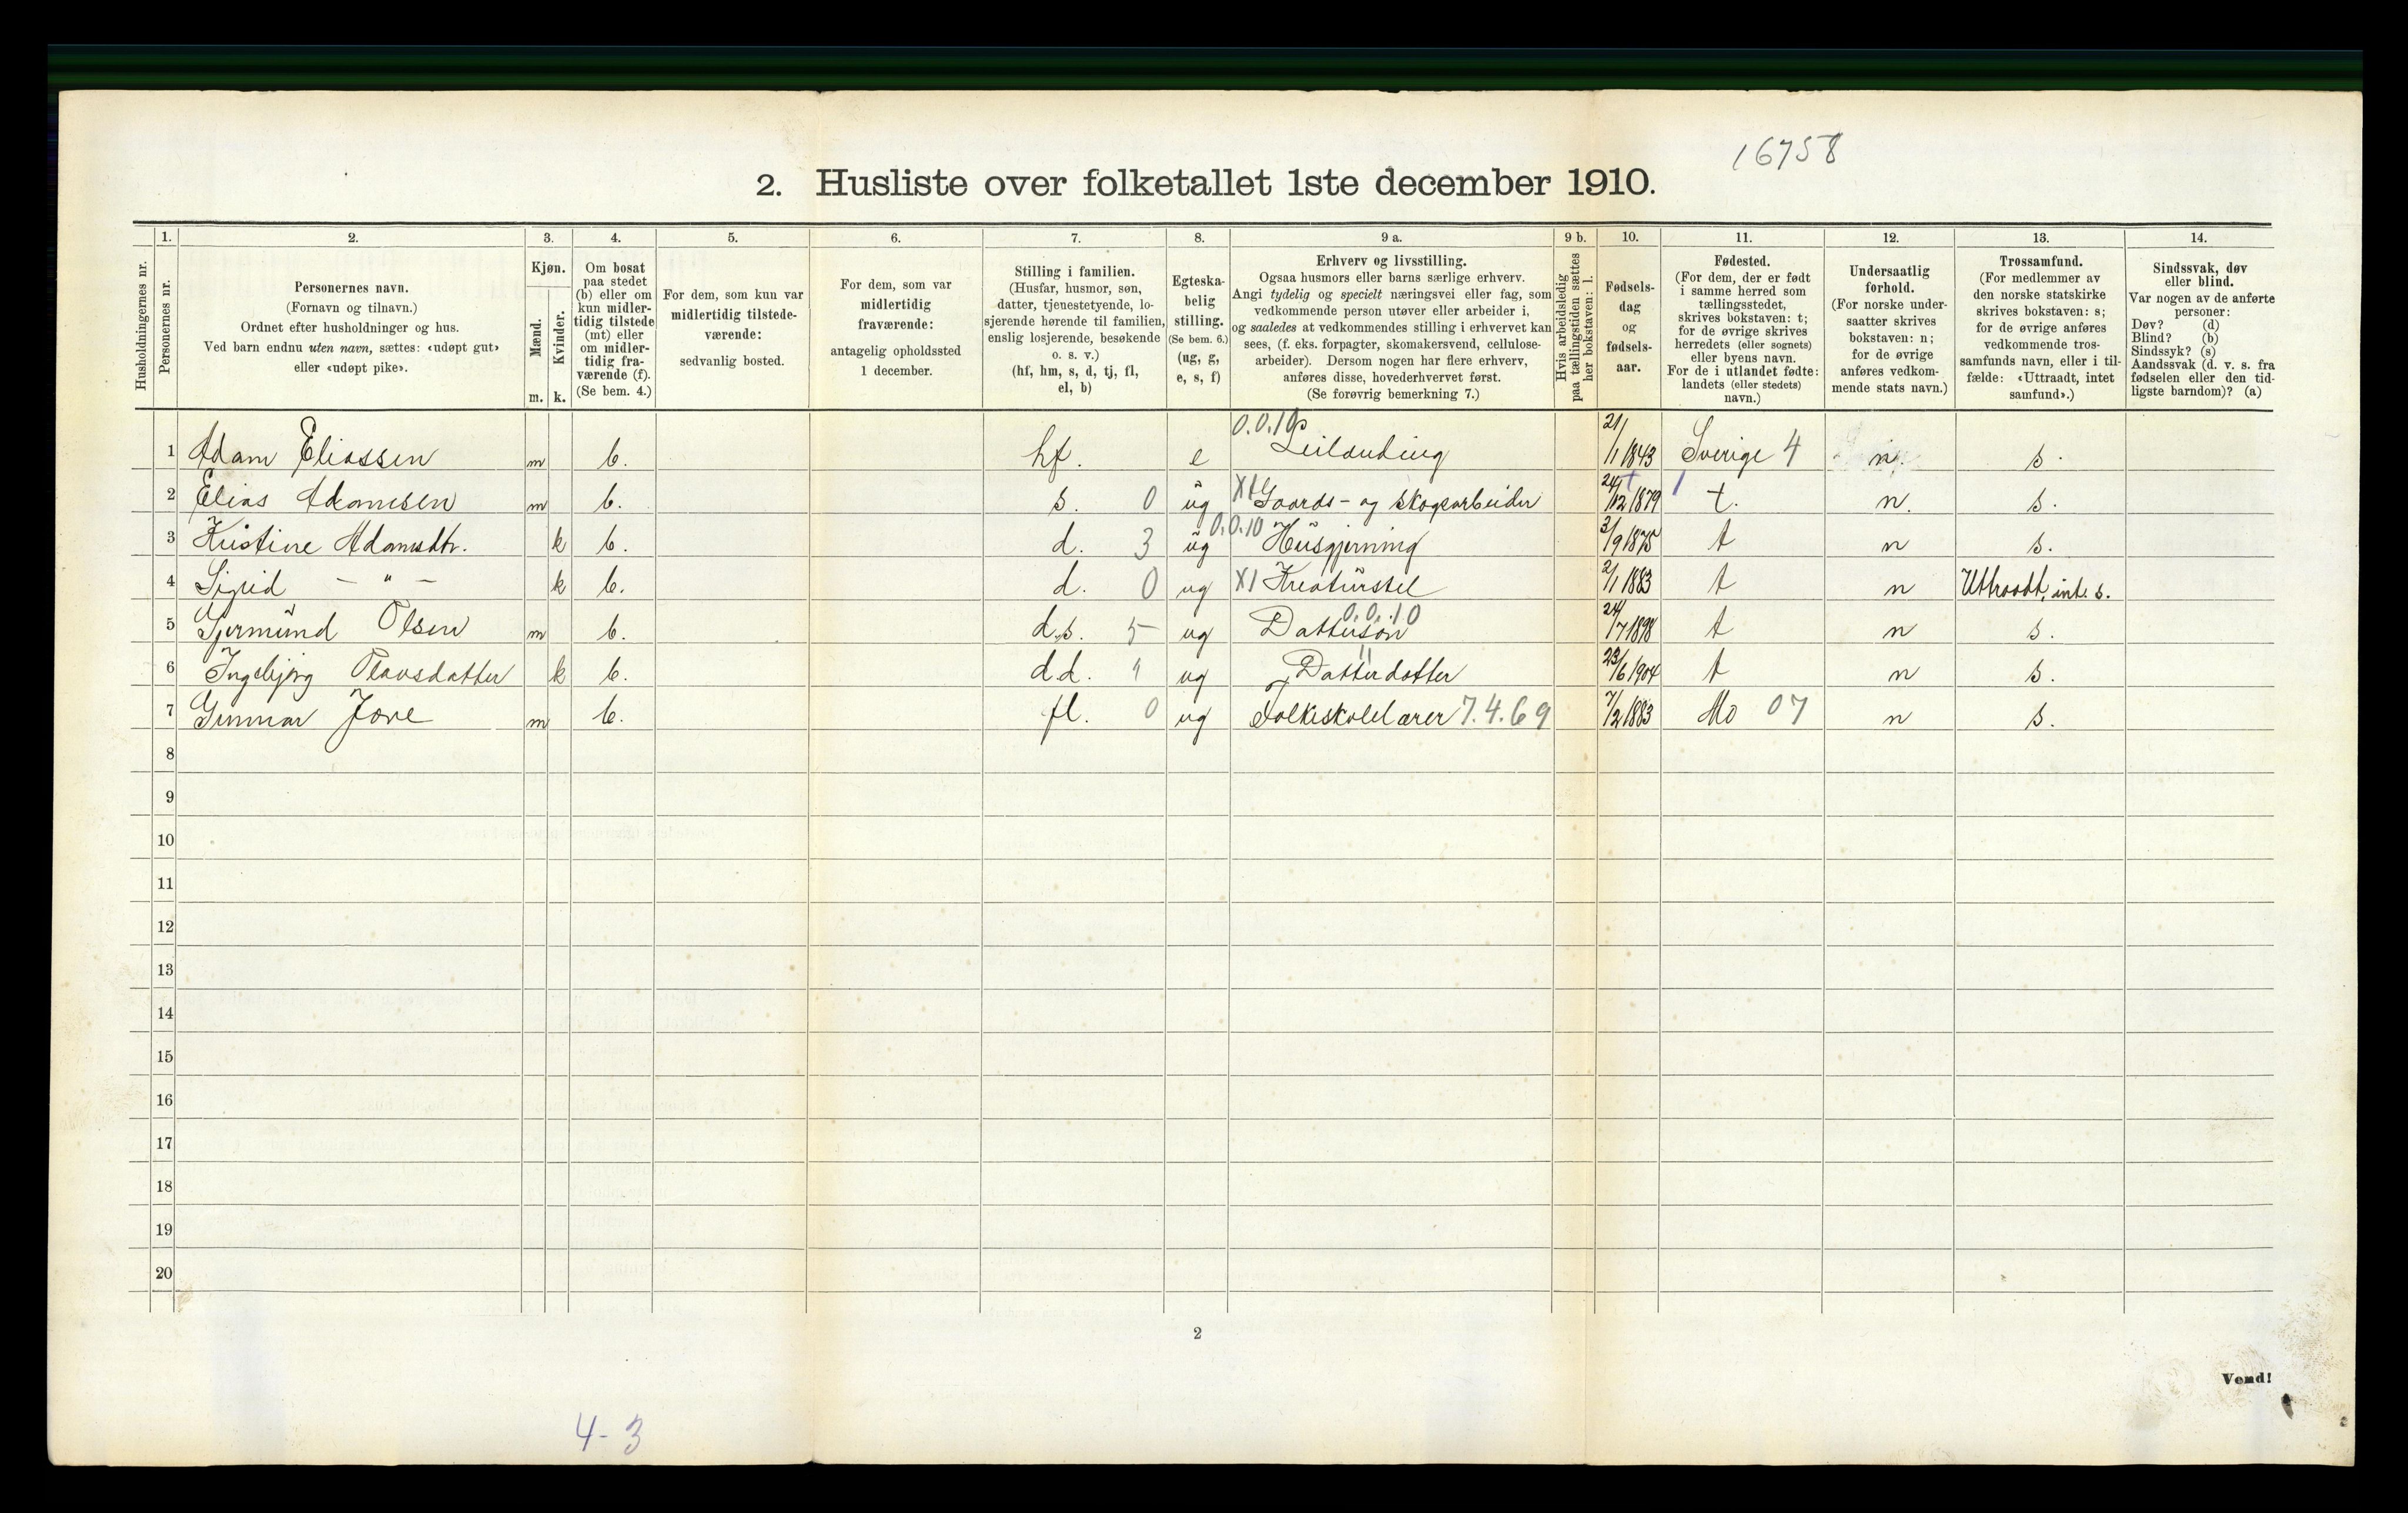 16758
2. Husliste over folketallet 1ste december 1910.
Husholdningernes nr.
1. Personernes nr.
2. Personernes navn. (Fornavn og tilnavn.) Ordnet efter husholdninger og hus. Ved barn endnu uten navn, sættes: «udøpt gut» eller «udøpt pike».
3. Kjøn. Mænd. m. Kvinder. k.
4. Om bosat paa stedet (b) eller om kun midlertidig tilstede (mt) eller om midlertidig fraværende (f). (Se bem. 4.)
5. For dem, som kun var midlertidig tilstedeværende: sedvanlig bosted.
6. For dem, som var midlertidig fraværende: antagelig opholdssted 1 december.
7. Stilling i familien. (Husfar, husmor, søn, datter, tjenestetyende, losjerende hørende til familien, enslig losjerende, besøkende o. s. v.) (hf, hm, s, d, tj, fl, el, b)
8. Egteskabelig stilling. (Se bem. 6.) (ug, g, e, s, f)
9 a. Erhverv og livsstilling. Ogsaa husmors eller barns særlige erhverv. Angi tydelig og specielt næringsvei eller fag, som vedkommende person utøver eller arbeider i, og saaledes at vedkommendes stilling i erhvervet kan sees, (f. eks. forpagter, skomakersvend, cellulosearbeider). Dersom nogen har flere erhverv, anføres disse, hovederhvervet først. (Se forøvrig bemerkning 7.)
9 b. Hvis arbeidsledig paa tællingstiden sættes her bokstaven: l.
10. Fødselsdag og fødselsaar.
11. Fødested. (For dem, der er født i samme herred som tællingsstedet, skrives bokstaven: t; for de øvrige skrives herredets (eller sognets) eller byens navn. For de i utlandet fødte: landets (eller stedets) navn.)
12. Undersaatlig forhold. (For norske undersaatter skrives bokstaven: n; for de øvrige anføres vedkommende stats navn.)
13. Trossamfund. (For medlemmer av den norske statskirke skrives bokstaven: s; for de øvrige anføres vedkommende trossamfunds navn, eller i tilfælde: «Uttraadt, intet samfund».)
14. Sindssvak, døv eller blind. Var nogen av de anførte personer: Døv? (d) Blind? (b) Sindssyk? (s) Aandssvak (d. v. s. fra fødselen eller den tidligste barndom)? (a)
1 Adam Eliassen m b. hf. e Leilænding 21/1 1843 Sverige 4 n. s.
2 Elias Adamsen m b. s. 0 ug X1 Gaards- og skogsarbeider 24/12 1879 t. n. s.
3 Kristine Adamsdtr. k b. d. 3 ug 0.0.10 Husgjerning 3/9 1875 t n s.
4 Sigrid — " — k b. d. 0 ug X1 Kreaturstel 2/1 1883 t n Uttraadt, int. s.
5 Gjermund Olsen m b. d.s. 5 ug Dattersøn 0.0.10 24/7 1898 t n s.
6 Ingebjørg Olavsdatter k b. d.d. " ug Datterdatter " 23/6 1904 t n s.
7 Gunnar Jore m b. fl. 0 ug Folkeskolelærer 7.4.69 7/2 1883 Mo 07 n s.
8
9
10
11
12
13
14
15
16
17
18
19
20
2
Vend!
4-3